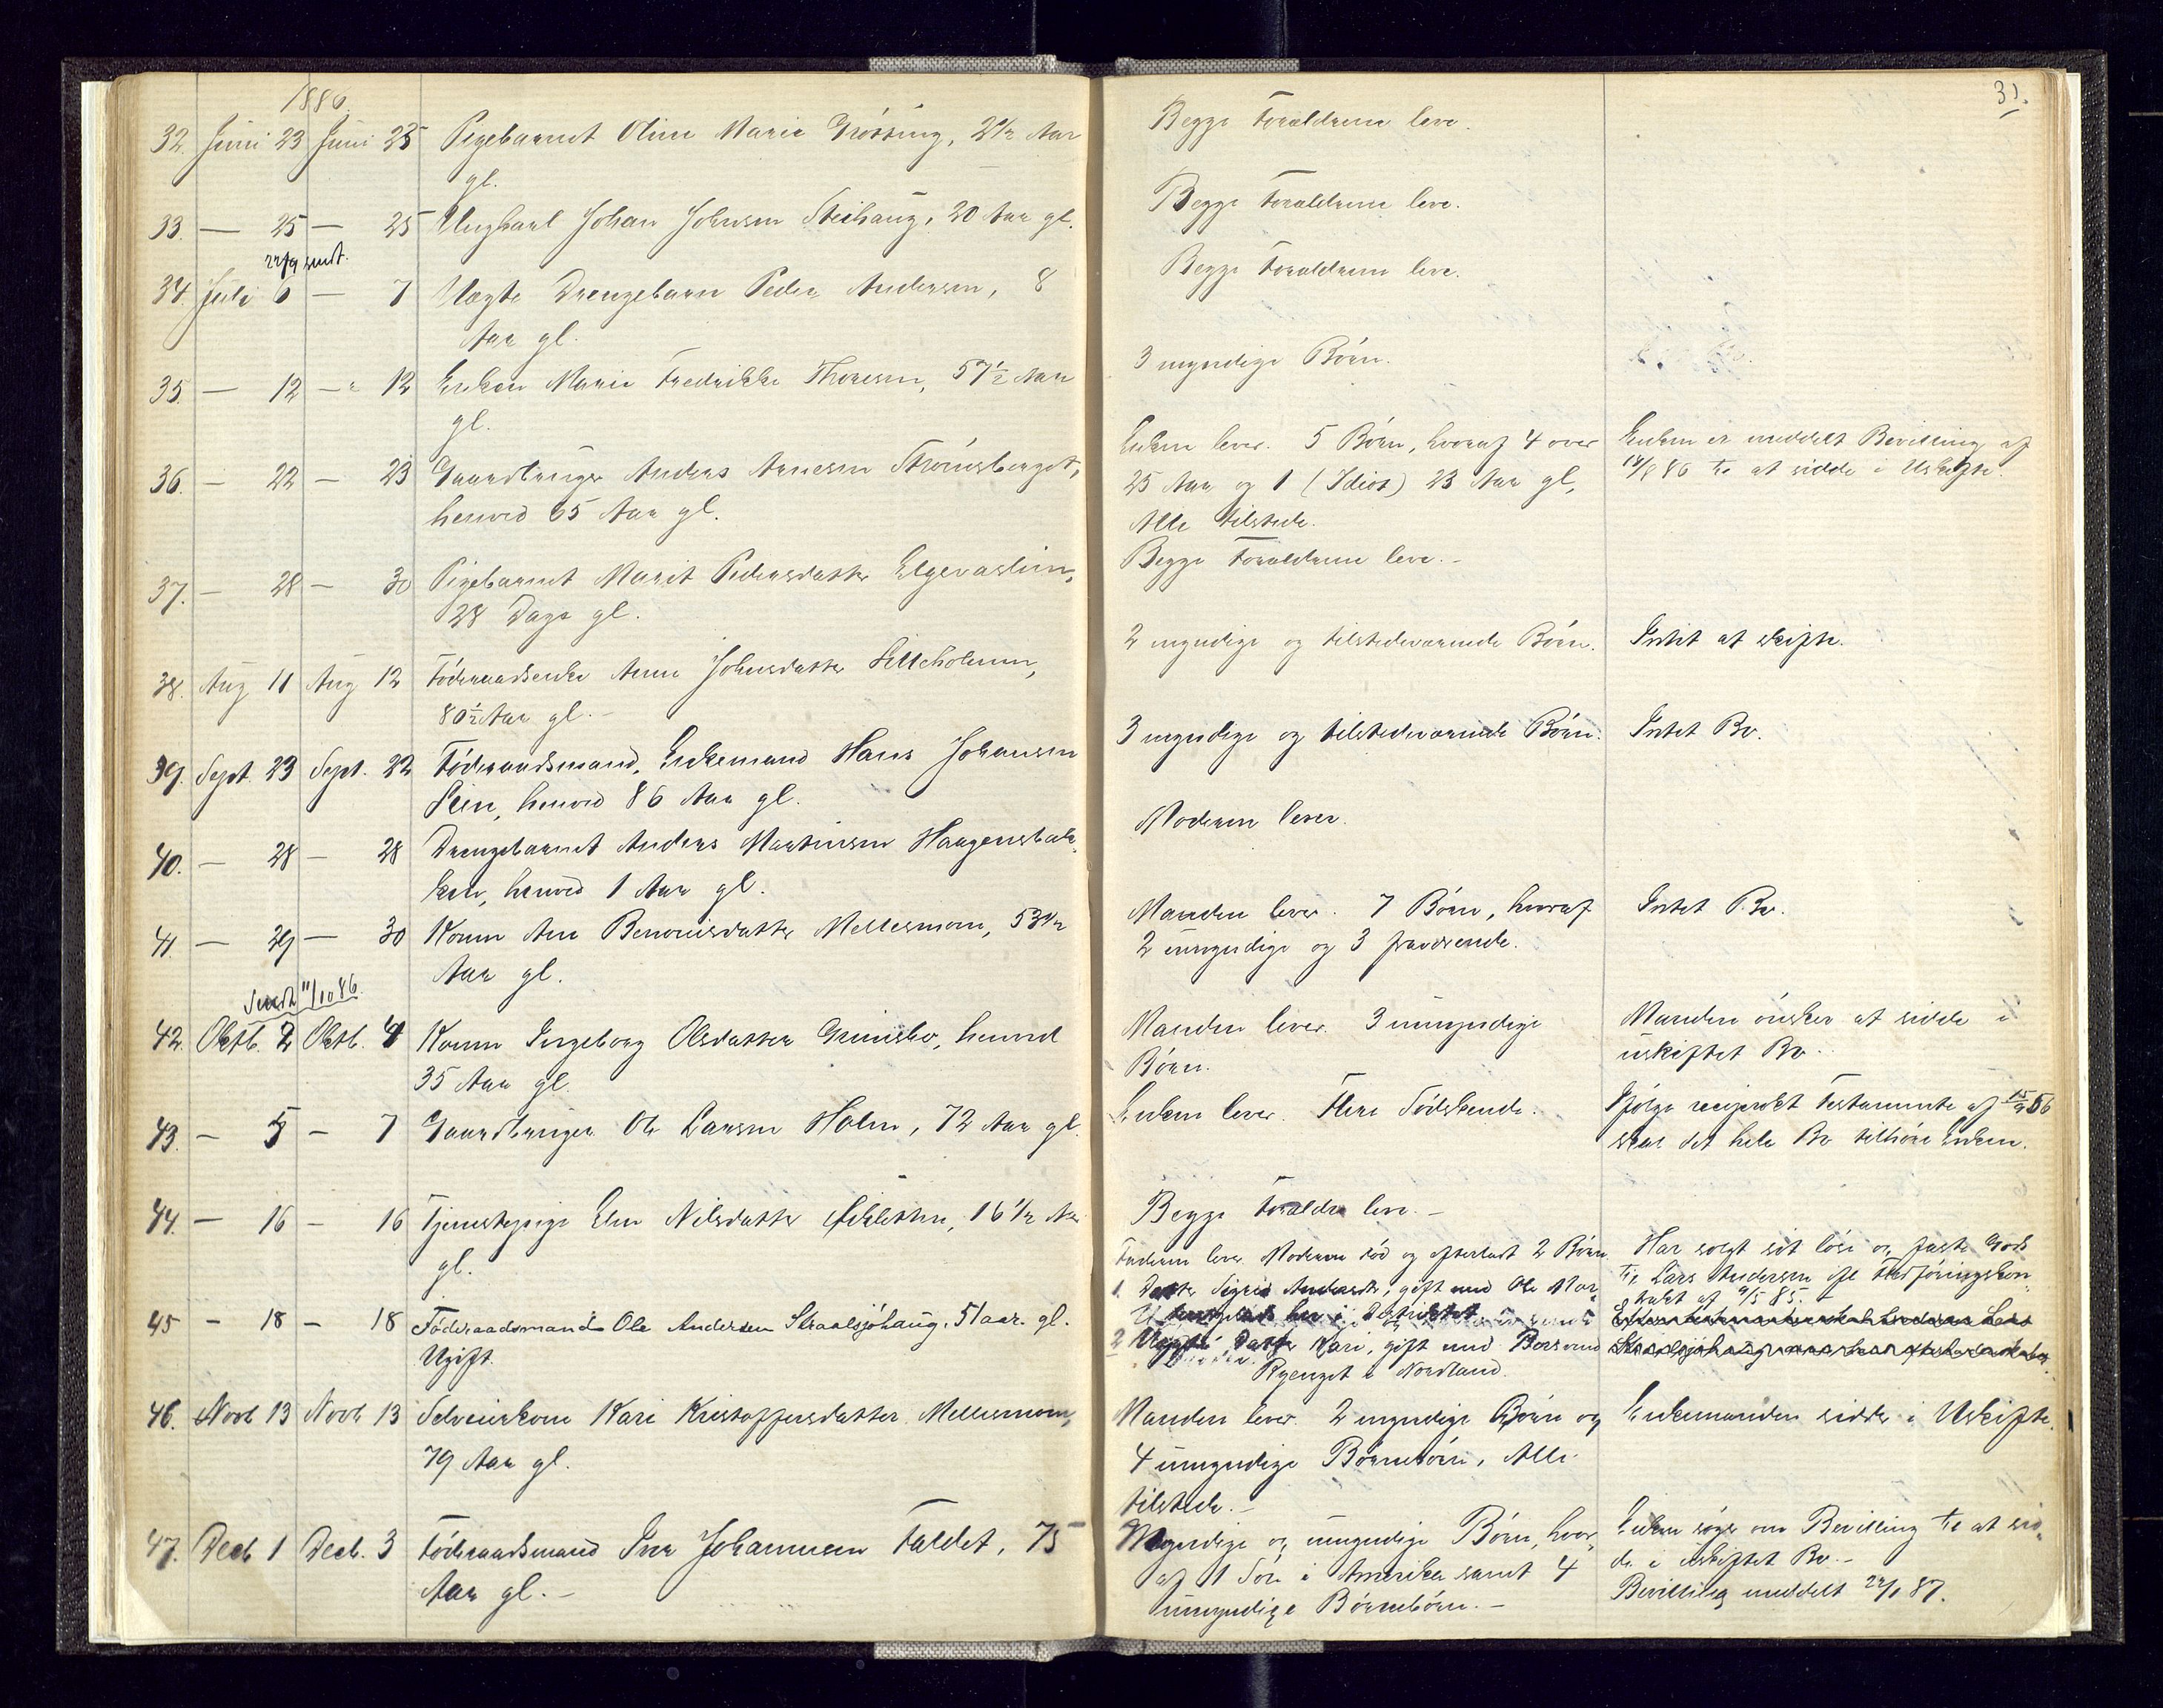 1886.
32. Juni 23 Juni 25 Pigebarnet Oline Marie Grøssing, 2 1/2 Aar
gl.
33. — 25 — 25 Ungkarl Johan Johnsen Steihaug, 20 Aar gl.
22/9 sendt.
34. Juli 6 — 7 Uægte Drengebarn Peder Andersen, 8
Aar gl.
35. — 12 — 12 Enken Marie Fredrikke Thoresen, 57 1/2 Aar
gl.
36. — 22 — 23 Gaardbruger Anders Arnesen Strømsberget,
henved 65 Aar gl.
37. — 28 — 30 Pigebarnet Marit Pedersdatter Elgevaslien,
28 Dage gl.
38. Aug 11 Aug 12 Føderaadsenke Anne Johnsdatter Lilleholmen,
80 1/2 Aar gl. —
39. Sept. 23 Sept. 22 Føderaadsmand, Enkemand Hans Johansen
Lien, henved 86 Aar gl.
40. — 28 — 28 Drengebarnet Anders Martinsen Haagensbak-
ken, henved 1 Aar gl.
41. — 29 — 30 Konen Ane Benonisdatter Mellesmoen, 53 1/2
Aar gl.
Sendt 11/10 86.
42. Oktb. 2 Oktb. 4 Konen Ingeborg Olsdatter Grimsbo, henved
35 Aar gl.
43. — 5 — 7 Gaardbruger Ole Larsen Holm, 72 Aar gl.
44. — 16 — 16 Tjenestepige Elen Nilsdatter 16 1/2 Aar
gl.
45 — 18 — 18 Føderaadsmand Ole Andersen Straalsjøhaug. 51 aar. gl.
Ugift.
46. Novb 13 Novb 13 Selveierkone Kari Kristoffersdatter Mellesmoen,
79 Aar gl.
47. Decb 1 Decb. 3 Føderaadsmand Iver Johannesen Faldet, 75
Aar gl. —
31.
Begge Forældrene leve.
Begge Forældrene leve.
Begge Forældrene leve.
3 myndige Børn.
Enken lever. 5 Børn, hvoraf 4 over
25 Aar og 1 (Idiot) 23 Aar gl,
Alle tilstede.
Enken er meddelt Bevilling af
86 til at sidde i Uskifte
Begge Forældrene leve. —
2 myndige og tilstedeværende Børn. Intet at skifte.
3 myndige og tilstedeværende Børn. Intet Bo.
Moderen lever.
Manden lever. 7 Børn, hvoraf Intet Bo.
2 umyndige og 3 fraværende.
Manden lever. 3 umyndige
Børn.
Manden ønsker at sidde i
uskiftet Bo.
Enken lever. Flere Sødskende.
Ifølge reciprokt Testamente af 56
skal det hele Bo tilhøre Enken.
Begge Forældre leve. —
Faderen lever Moderen død og efterladt 2 Børn
1. Datter Sigrid Andersdr, gift med Ole
2 Uægte Datter Kari, gift med
i Nordland.
Har solgt sit løse og faste Gods
til Lars Andersen ifl Kon-
trakt af 85.
Manden lever. 2 myndige Børn og
4 umyndige Børnebørn, Alle
tilstede. —
Enkemanden sidder i Uskifte.
Myndige og umyndige Børn, hvor-
af 1 Søn i Amerika samt 4
umyndige Børnebørn. —
Enken søger om Bevilling til at sid-
de i uskiftet Bo. —
Bevilling meddelt 22/1 87.